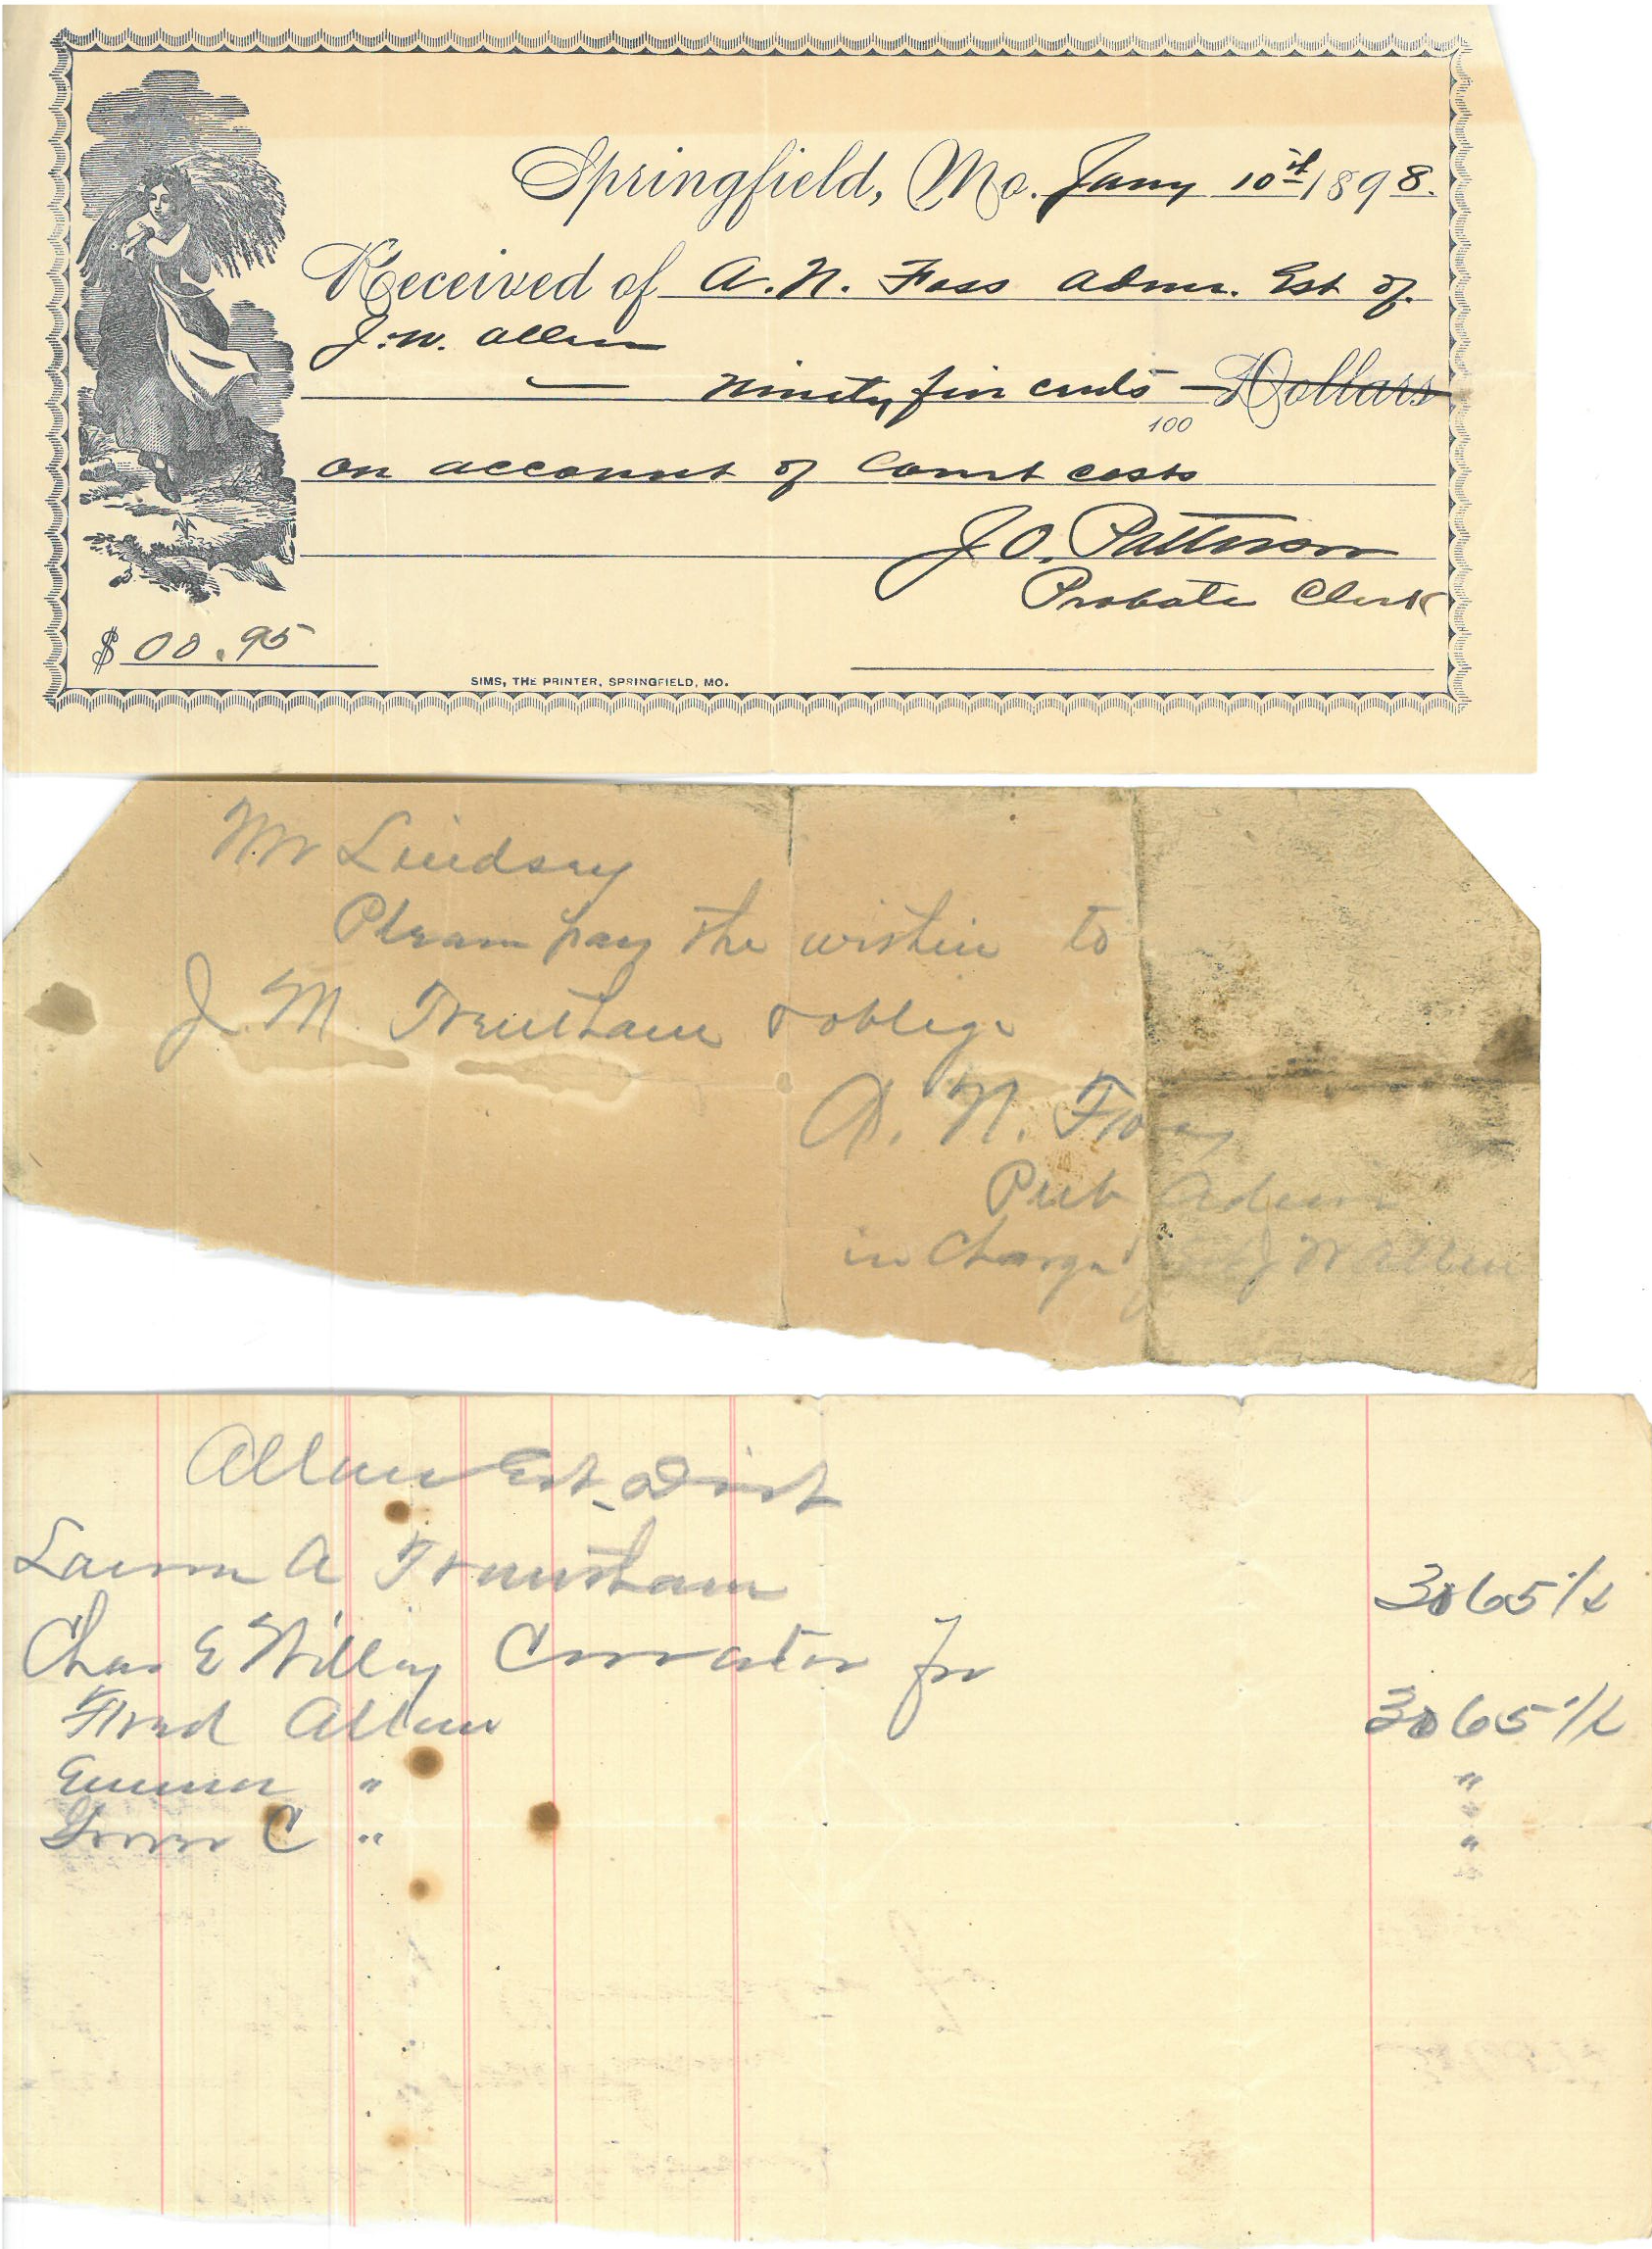 Springfield, Mo. Jany 10th 1898.
Received of A. N. Foss Admr. Est of
J. W. Allen
— Ninety five cents — Dollars
100
on account of Court costs
J. O. Patterson
Probate Clerk
$ 00.95
SIMS, THE PRINTER, SPRINGFIELD, MO.
Mr Lindsay
Please pay the within to
J. M. Trentham & oblige
A. N. Foss
Pub Adm
in Charge Est J W Allen
Allen Est. Dist
Laura A Trentham 3065 1/2
Chas E Willey Curator for
Fred Allen 3065 1/2
Emma " "
Grover C " "